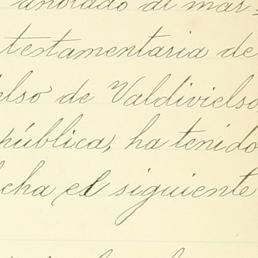 anotado al mar-
testamentaria de
elso de Valdivielso,
pública, ha tenido
cha el siguiente